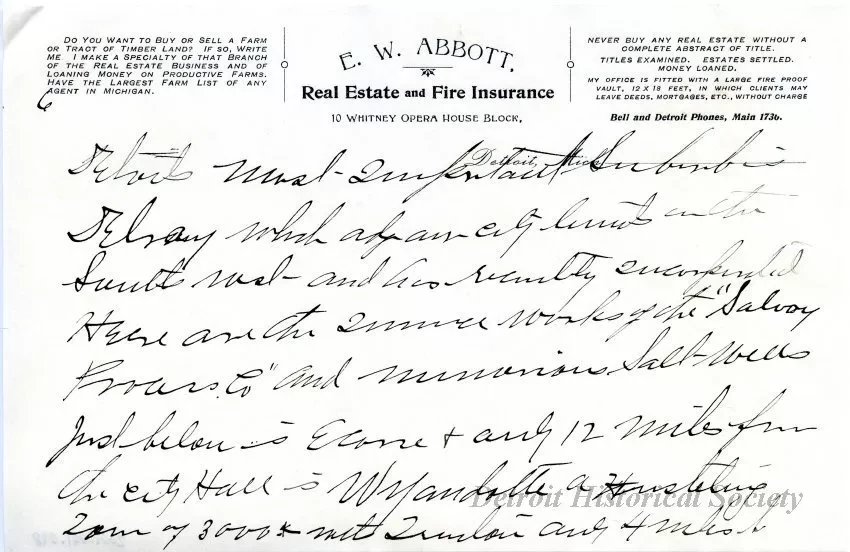 DO YOU WANT TO BUY OR SELL A FARM
OR TRACT OF TIMBER LAND? IF SO, WRITE
ME. I MAKE A SPECIALTY OF THAT BRANCH
OF THE REAL ESTATE BUSINESS AND OF
LOANING MONEY ON PRODUCTIVE FARMS.
HAVE THE LARGEST FARM LIST OF ANY
AGENT IN MICHIGAN.
6
E. W. ABBOTT,
Real Estate and Fire Insurance
10 WHITNEY OPERA HOUSE BLOCK,
NEVER BUY ANY REAL ESTATE WITHOUT A
COMPLETE ABSTRACT OF TITLE.
TITLES EXAMINED. ESTATES SETTLED.
MONEY LOANED.
MY OFFICE IS FITTED WITH A LARGE FIRE PROOF
VAULT, 12 X 18 FEET, IN WHICH CLIENTS MAY
LEAVE DEEDS, MORTGAGES, ETC., WITHOUT CHARGE
Bell and Detroit Phones, Main 1736.
Detroit, Mich.
Detroits most Important Suburb is
Delray which our city limits on the
South west and has recently incorporated
Here are the works of the "Salvay
Process Co" and numerious Salt wells
Just below is Ecorse & only 12 miles from
the city Hall is Wyandotte a Hustling
Town of 3000 Trenton only 4 miles
Detroit Historical Society